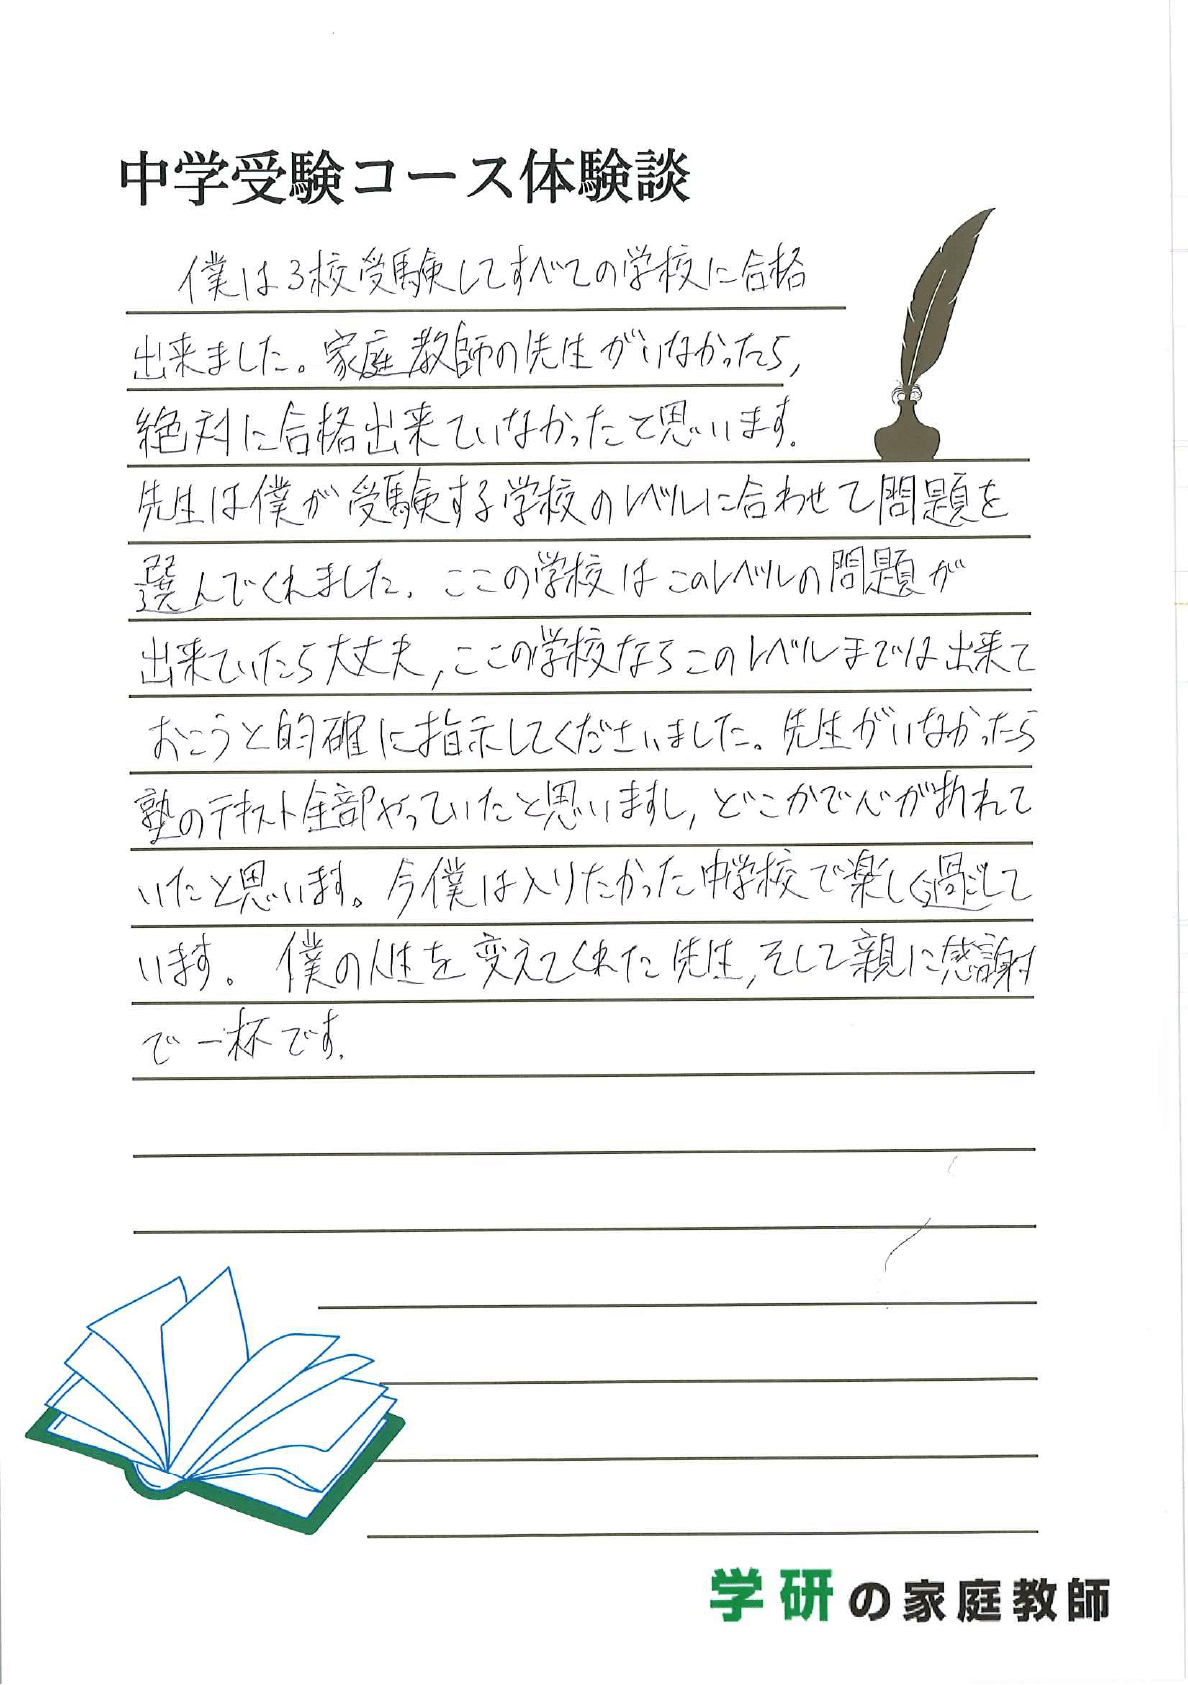 中学受験コース体験談
僕は3校受験してすべての学校に合格
出来ました。家庭教師の先生がいなかったら,
絶対に合格出来ていなかったと思います.
先生は僕が受験する学校のレベルに合わせて問題を
選んでくれました. ここの学校はこのレベルの問題が
出来ていたら大丈夫,ここの学校ならこのレベルまでは出来て
おこうと的確に指示してくださいました。先生がいなかったら
塾のテキスト全部やっていたと思いますし,どこかで心が折れて
いたと思います。今僕は入りたかった中学校で楽しく過ごして
います。 僕の人生を変えてくれた先生,そして親に感謝
で一杯です.
学研の家庭教師